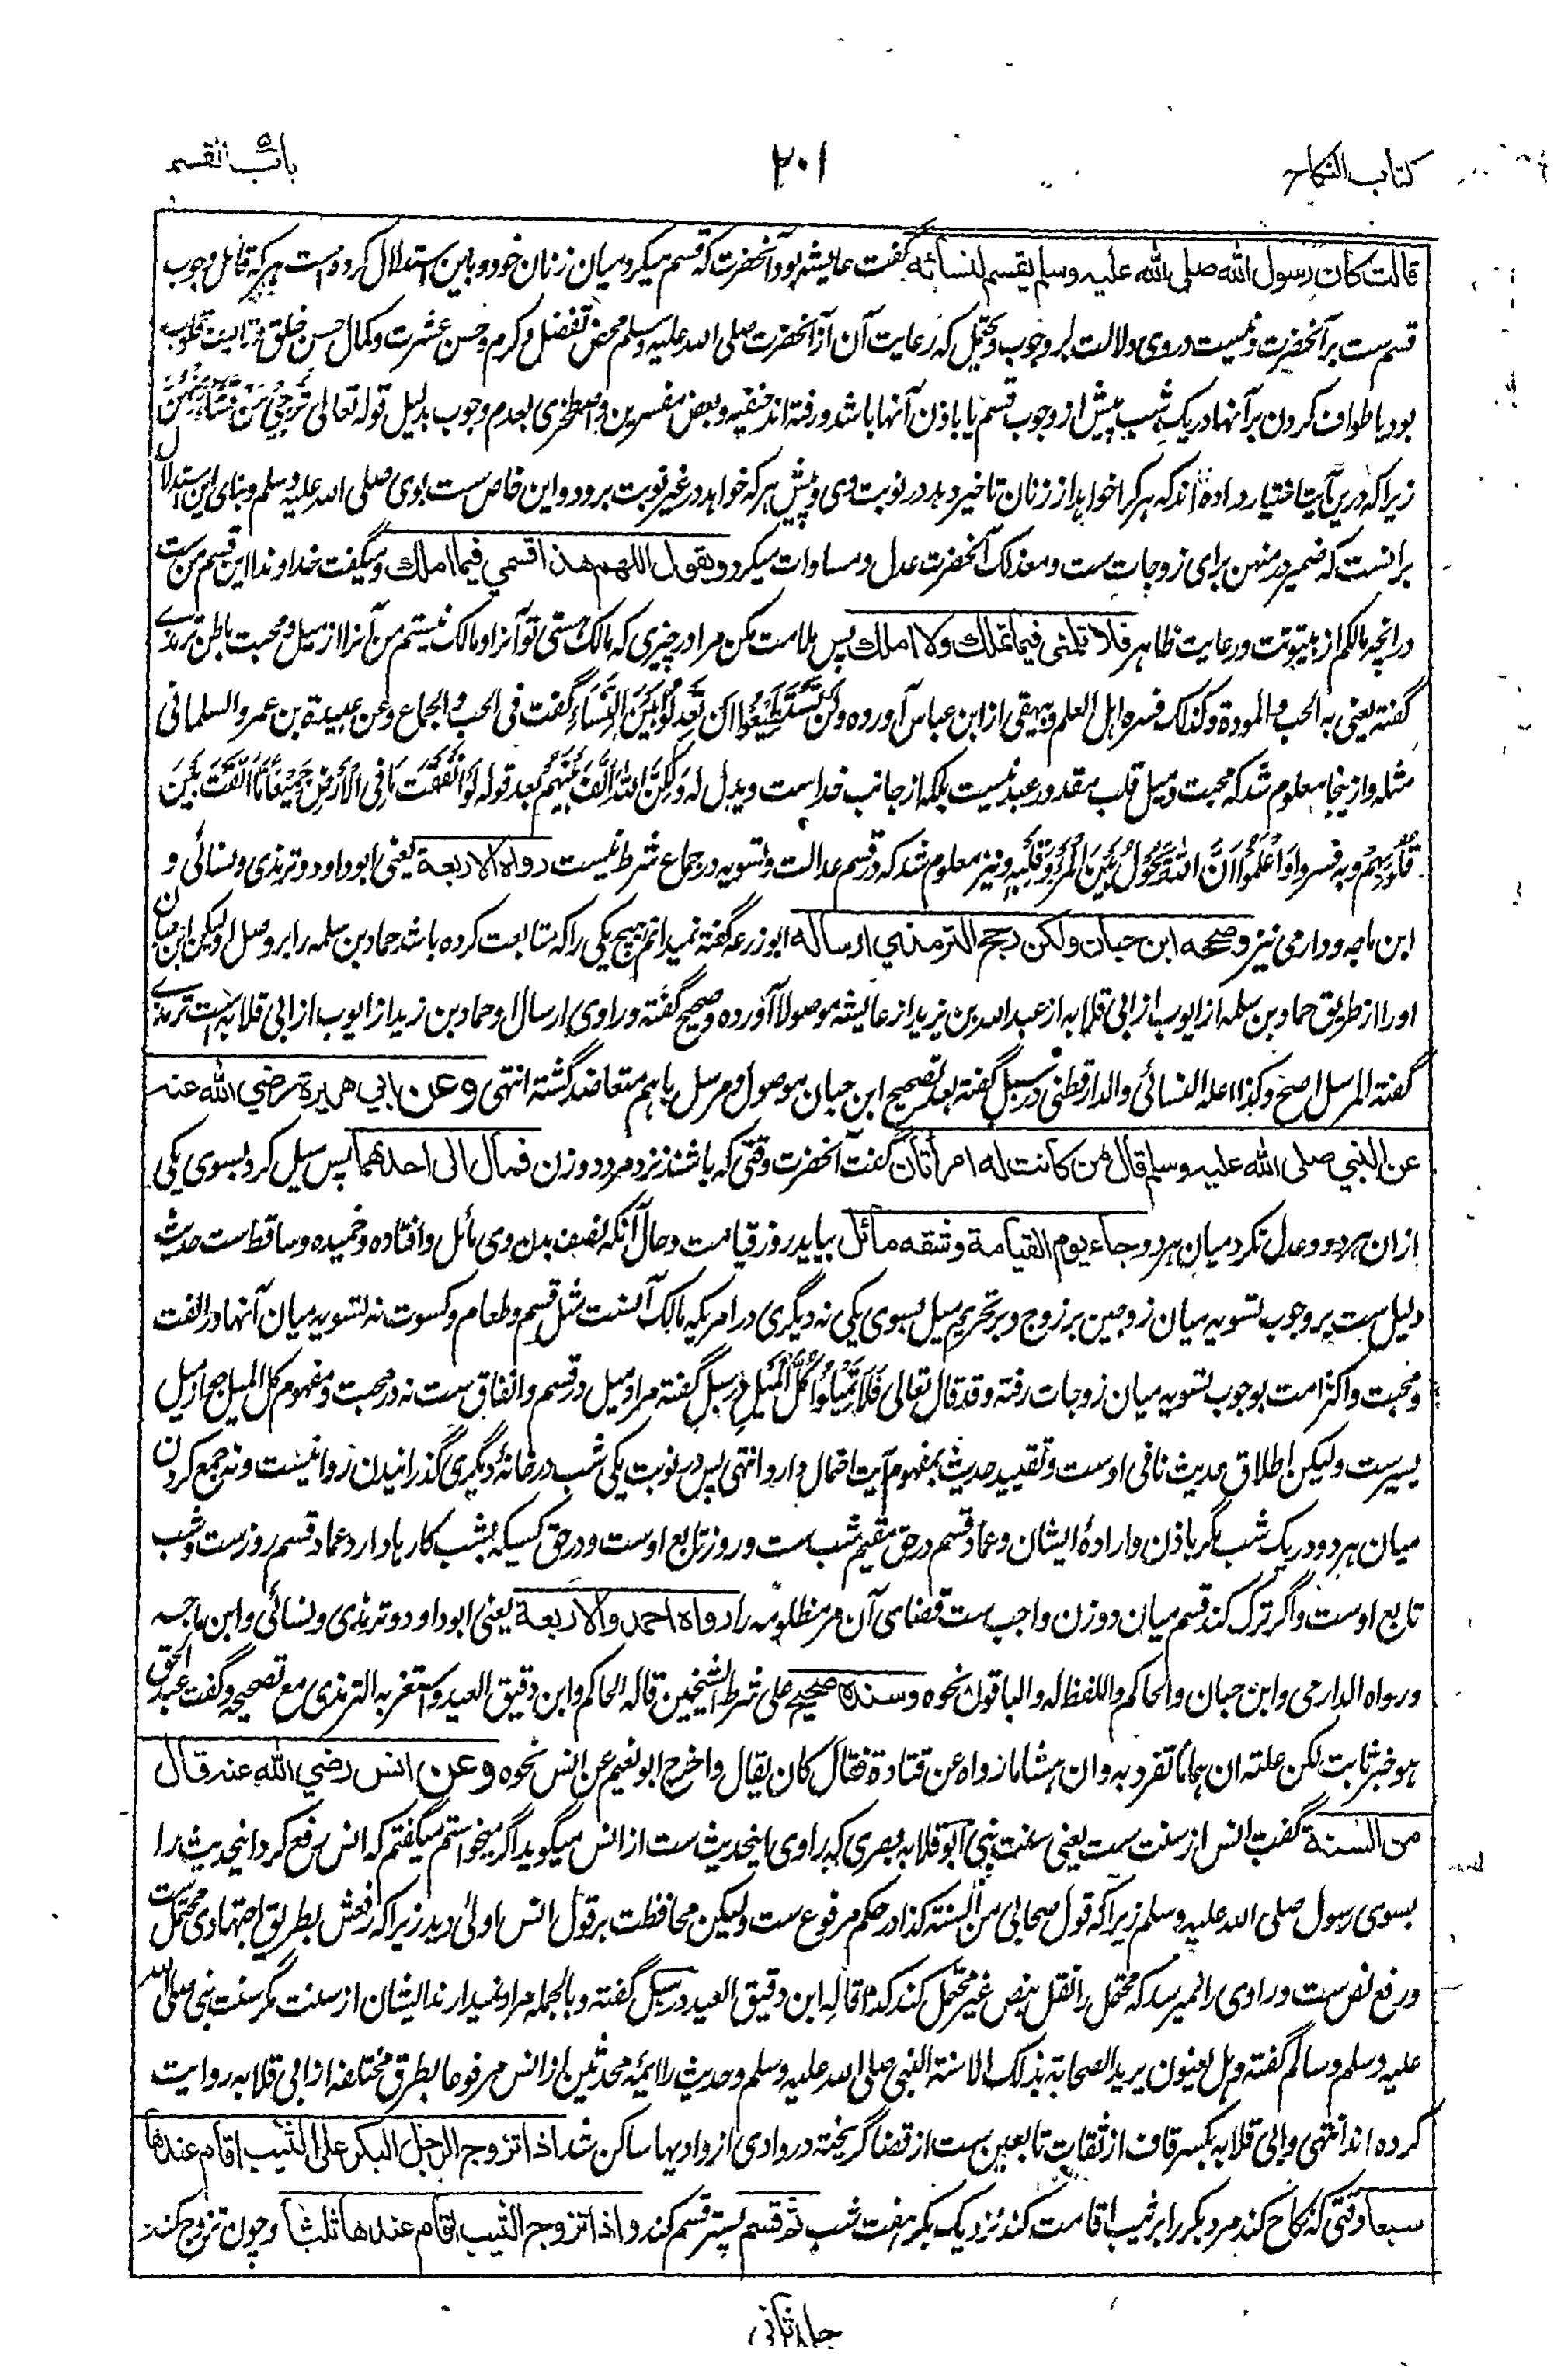 کتاب النکاح
۲۰۱
باب القسم
قالت کان رسول الله صلی الله علیه وسلم یقسم لنسائه گفت عایشه بود آنحضرت که قسم میکرد میان زنان خود و باین استدلال کرده است هر که قائل وجوب
قسم ست بر آنحضرت و نیست در وی دلالت بر وجوب و محتمل که رعایت آن از آنحضرت صلی الله علیه وسلم محض تفضل و کرم و حسن عشرت و کمال حسن خلق و تالیف قلوب
بود یا طواف کردن بر آنها در یک شب پیش از وجوب قسم یا باذن آنها باشد و رفته اند حنفیه و بعض مفسرین و اصطخری بعدم وجوب بدلیل قوله تعالی تُرْجِیْ مَنْ تَشَاءُ مِنْهُنَّ
زیرا که درین آیت اختیار داده اند که هر کرا خواهد از زنان تاخیر دهد در نوبت وی و پیش هر که خواهد در غیر نوبت برود و این خاص ست بوی صلی الله علیه وسلم و بنای این استدلال
برانست که ضمیر در منهن برای زوجات ست و معذلک آنحضرت عدل و مساوات میکرد ویقول اللهم هذا قسمی فیما املک و میگفت خداوندا این قسم من ست
در آنچه مالکم از بیتوتت و رعایت ظاهر فلا تلمنی فیما تملک ولا املک پس ملامت مکن مرا در چیزی که مالک هستی تو آنرا و مالک نیستم من آنرا از میل و محبت باطن ترمذی
گفته یعنی به الحب والمودة وکذلک فسره اهل العلم و بیهقی از ابن عباس آورده وَلَنْ تَسْتَطِیْعُوْا اَنْ تَعْدِلُوْا بَیْنَ النِّسَاءِ گفت فی الحب والجماع وعن عبیدة بن عمرو السلمانی
مثله و ازینجا معلوم شد که محبت و میل قلب مقدور عبد نیست بلکه از جانب خداست ویدل له وَلٰکِنَّ اللهَ اَلَّفَ بَیْنَهُمْ بعد قوله لَوْ اَنْفَقْتَ مَا فِی الْاَرْضِ جَمِیْعًا مَّا اَلَّفْتَ بَیْنَ
قُلُوْبِهِمْ وبه فسروا وَاعْلَمُوْا اَنَّ اللهَ یَحُوْلُ بَیْنَ الْمَرْءِ وَقَلْبِهٖ و نیز معلوم شد که در قسم عدالت و تسویه در جماع شرط نیست رواه الاربعة یعنی ابوداود و ترمذی و نسائی و
ابن ماجه و دارمی نیز وصححه ابن حبان ولکن رجح الترمذی ارساله ابوزرعه گفته نمیدانم هیچ یکی را که متابعت کرده باشد حماد بن سلمه را بر وصل او لیکن ابن حبان
او را از طریق حماد بن سلمه از ایوب از ابی قلابه از عبد الله بن یزید از عایشه موصولا آورده و صحیح گفته و راوی ارسال او حماد بن زید از ایوب از ابی قلابه است ترمذی
گفته المرسل اصح وکذا اعله النسائی والدارقطنی در سبل گفته بعد تصحیح ابن حبان موصول و مرسل باهم متعاضد گشته انتهی وعن ابی هریرة رضی الله عنه
عن النبی صلی الله علیه وسلم قال من کانت له امرأتان گفت آنحضرت وقتی که باشند نزد مرد دو زن فمال الی احدهما پس میل کرد بسوی یکی
ازان هر دو و عدل نکرد میان هر دو جاء یوم القیامة وشقه مائل بیاید روز قیامت و حال آنکه نصف بدن وی مائل و افتاده و خمیده و ساقط ست حدیث
دلیل ست بر وجوب تسویه میان زوجین بر زوج و بر تحریم میل بسوی یکی نه دیگری در امریکه مالک آنست مثل قسم و طعام و کسوت نه تسویه میان آنها در الفت
و محبت و اکثر امت بوجوب تسویه میان زوجات رفته وقد قال تعالی فَلَا تَمِیْلُوْا کُلَّ الْمَیْلِ در سبل گفته مراد میل در قسم و انفاق ست نه در محبت و مفهوم کل المیل جواز میل
یسیر ست و لیکن اطلاق حدیث نافی اوست و تقیید حدیث بمفهوم آیت احتمال دارد انتهی پس در نوبت یکی شب در خانهٔ دیگری گذرانیدن روا نیست و نه جمع کردن
میان هر دو در یک شب مگر باذن و ارادهٔ ایشان و عماد قسم در حق مقیم شب ست و روز تابع اوست و در حق کسیکه بشب کارها دارد عماد قسم روز ست و شب
تابع اوست و اگر ترک کند قسم میان دو زن واجب ست قضای آن مر مظلومه را رواه احمد والاربعة یعنی ابوداود و ترمذی و نسائی و ابن ماجه
ورواه الدارمی وابن حبان والحاکم واللفظ له والباقون نحوه وسنده صحیح علی شرط الشیخین قاله الحاکم وابن دقیق العید واستغربه الترمذی مع تصحیحه و گفت عبد الحق
هو خبر ثابت لکن علته ان هماما تفرد به وان هشاما رواه عن قتادة فقال کان یقال واخرج ابو نعیم عن انس نحوه وعن انس رضی الله عنه قال
من السنة گفت انس از سنت ست یعنی سنت نبی ابوقلابه بصری که راوی اینحدیث ست از انس میگوید اگر میخواستم میگفتم که انس رفع کرد اینحدیث را
بسوی رسول صلی الله علیه وسلم زیرا که قول صحابی من السنة کذا در حکم مرفوع ست و لیکن محافظت بر قول انس اولی دید زیرا که رفعش بطریق اجتهادی محتمل ست
و رفع نص ست و راوی را نمیرسد که محتمل را نقل بنص غیر محتمل کند کذا قاله ابن دقیق العید در سبل گفته و بالجمله مراد نمیدارند ایشان از سنت مگر سنت نبی صلی الله
علیه وسلم و سالم گفته وهل یعنون یرید الصحابة بذلک الا سنة النبی صلی الله علیه وسلم و حدیث را ائمهٔ محدثین از انس مرفوعا بطرق مختلفه از ابی قلابه روایت
کرده اند انتهی و ابی قلابه بکسر قاف از ثقات تابعین ست از قضا گریخته در وادی از وادیها ساکن شد اذا تزوج الرجل البکر علی الثیب اقام عندها
سبعا وقتی که نکاح کند مرد بکر را بر ثیب اقامت کند نزدیک بکر هفت شب ثم قسم پستر قسم کند واذا تزوج الثیب اقام عندها ثلثا و چون تزوج کند
جلد ثانی